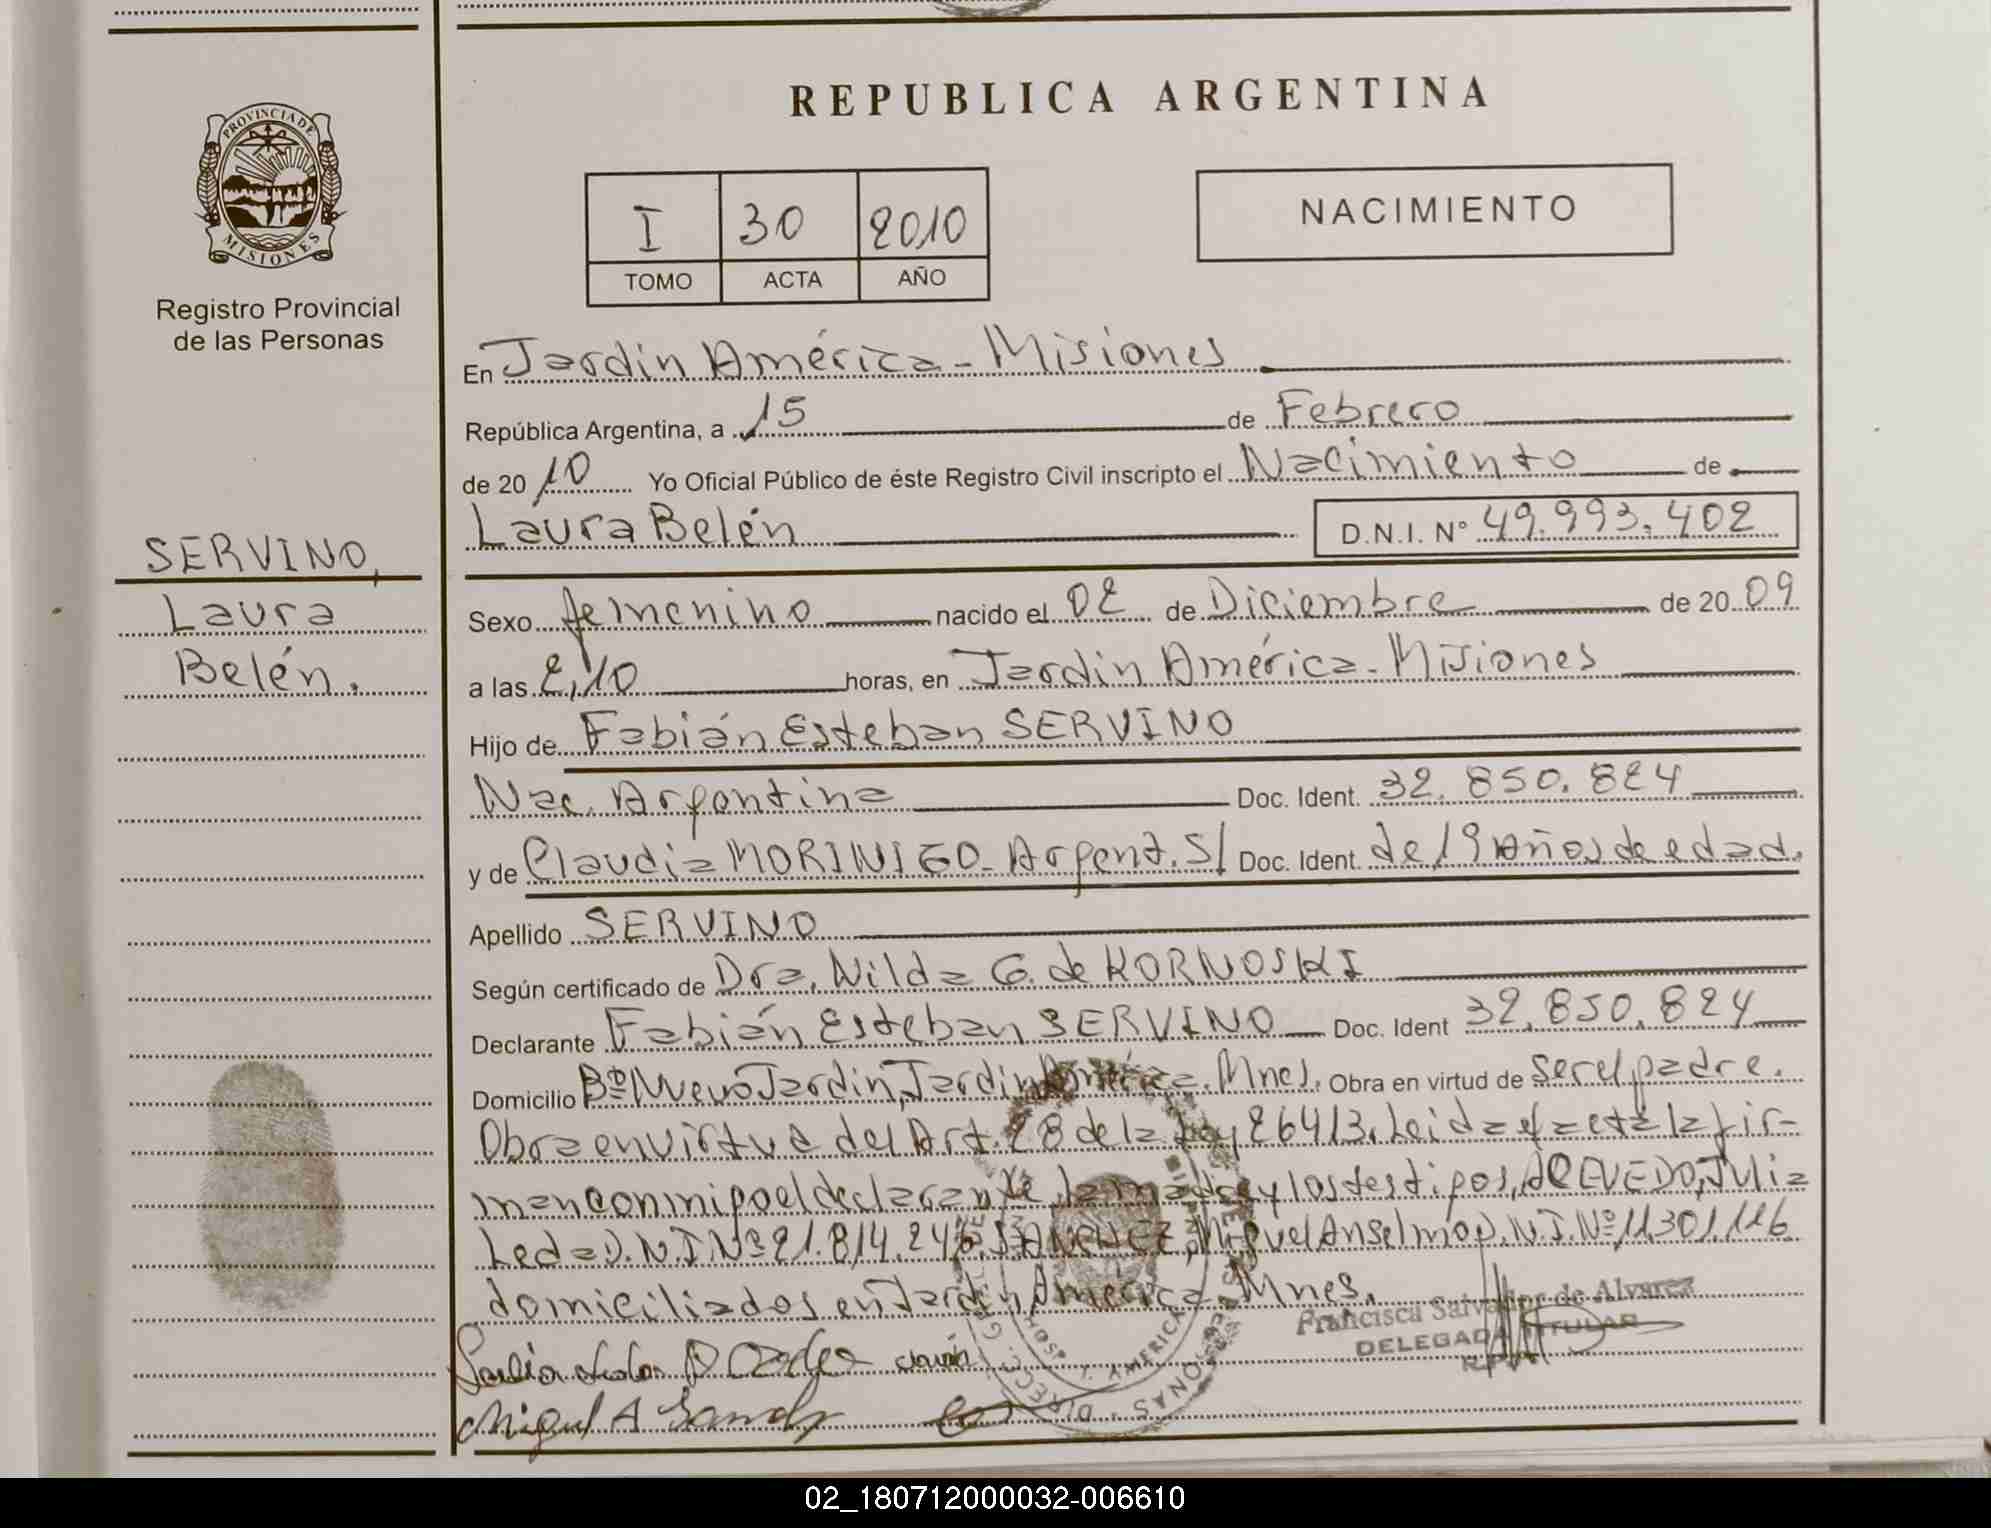 REPUBLICA ARGENTINA
PROVINCIA DE
MISIONES
Registro Provincial
de las Personas
I 30 2010
TOMO ACTA AÑO
NACIMIENTO
En Jardín América - Misiones
República Argentina, a 15 de Febrero
de 2010 Yo Oficial Público de éste Registro Civil inscripto el Nacimiento de
Laura Belén
D.N.I. Nº 49.993.402
SERVINO,
Laura
Belén.
Sexo femenino nacido el 02 de Diciembre de 2009
a las 2,10 horas, en Jardín América - Misiones
Hijo de Fabián Esteban SERVINO
Nac. Argentina Doc. Ident. 32.850.824
y de Claudia MORINIGO - Argent. S/ Doc. Ident. de 19 Años de edad.
Apellido SERVINO
Según certificado de Dra. Nilda G. de KORNOSKI
Declarante Fabián Esteban SERVINO Doc. Ident 32.850.824
Domicilio Bº Nuevo Jardín, Jardín América. Mnes. Obra en virtud de ser el padre.
Obra en virtud del Art. 28 de la Ley 26413. Leida el acta la fir-
man conmigo el declarante, la madre y los testigos, ACEVEDO, Julia
Leda D.N.I Nº 21.814.246, SANCHEZ, Miguel Anselmo D.N.I. Nº 11.301.116
domiciliados en Jardín América Mnes.
Francisca Salvador de Alvarez
DELEGADA TITULAR
Miguel A
02_180712000032-006610